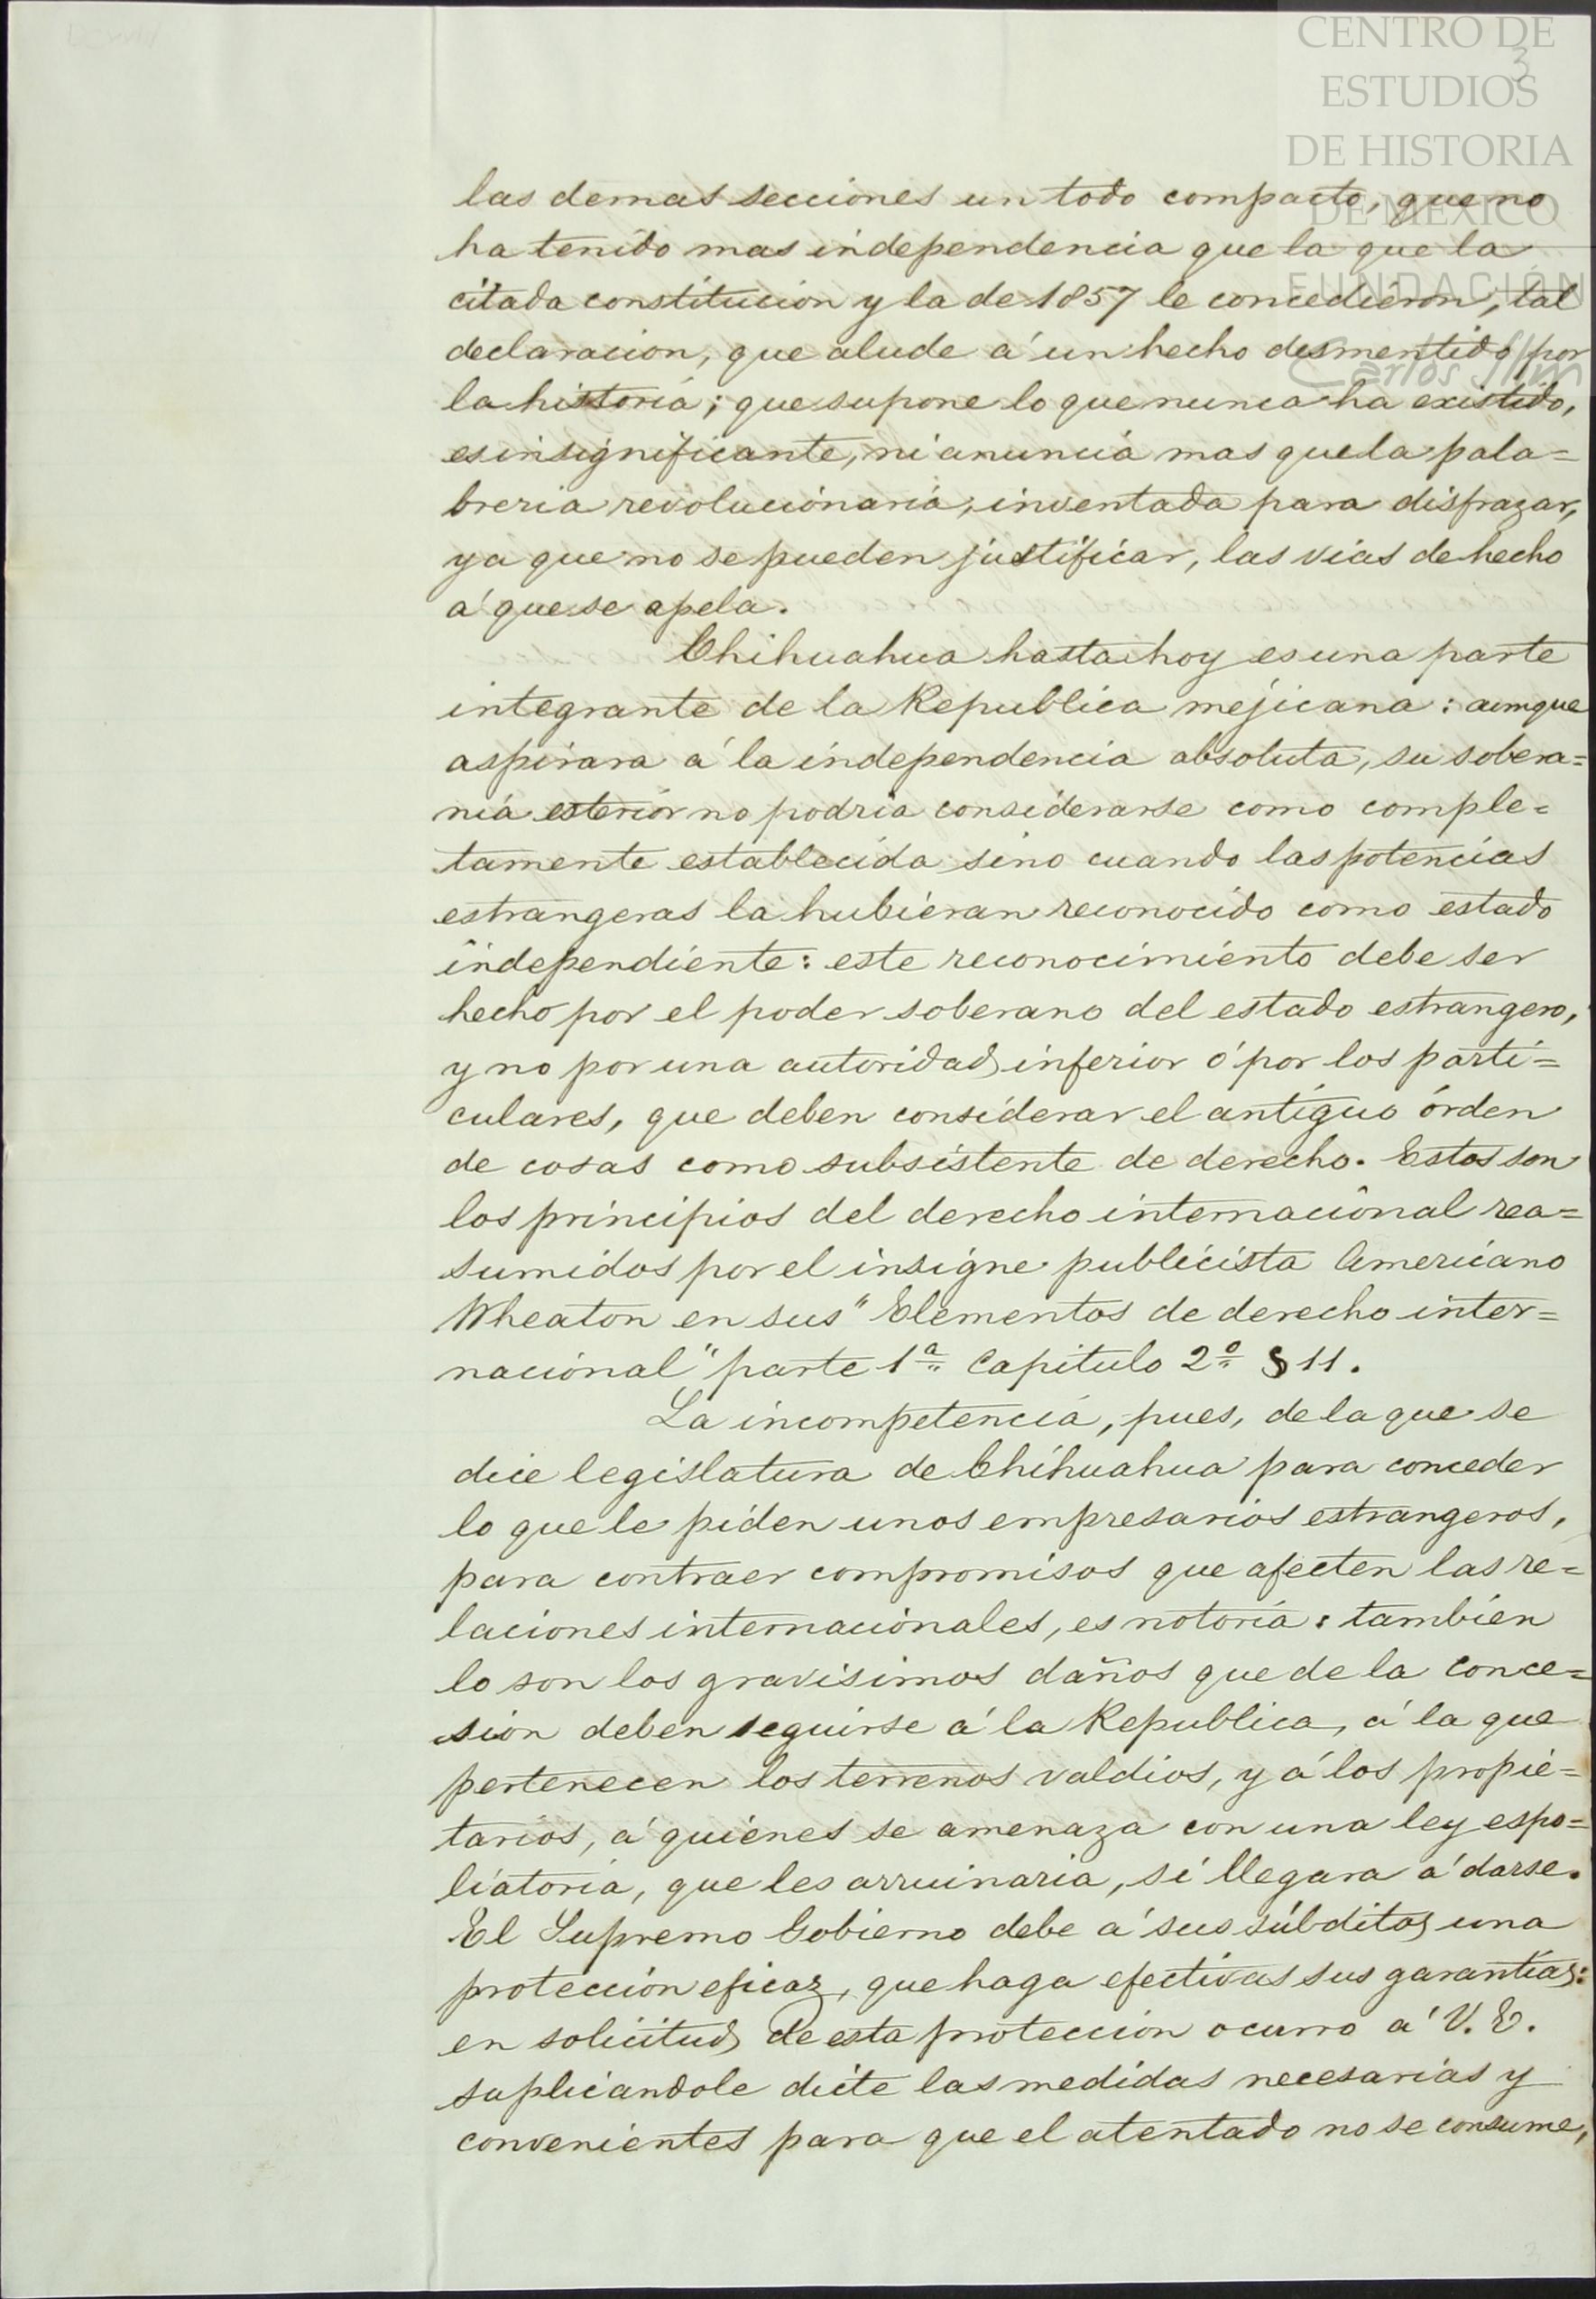 CENTRO DE
ESTUDIOS
DE HISTORIA
DE MÉXICO
FUNDACIÓN
Carlos Slim
3
las demas secciones un todo compacto, que no
ha tenido mas independencia que la que la
citada constitucion y la de 1857 le concedieron, tal
declaracion, que alude á un hecho desmentido por
la historia; que supone lo que nunca ha existido,
es insignificante, ni anuncia mas que la pala=
breria revolucionaria, inventada para disfrazar,
ya que no se pueden justificar, las vias de hecho
á que se apela.
Chihuahua hasta hoy es una parte
integrante de la Republica mejicana: aunque
aspirara á la independencia absoluta, su sobera=
nia esterior no podria considerarse como comple=
tamente establecida sino cuando las potencias
estrangeras la hubieran reconocido como estado
independiente: este reconocimiento debe ser
hecho por el poder soberano del estado estrangero,
y no por una autoridad inferior ó por los parti=
culares, que deben considerar el antiguo órden
de cosas como subsistente de derecho. Estos son
los principios del derecho internacional rea=
sumidos por el insigne publicista Americano
Wheaton en sus "Elementos de derecho inter=
nacional" parte 1ª Capitulo 2º § 11.
La incompetencia, pues, de la que se
dice legislatura de Chihuahua para conceder
lo que le piden unos empresarios estrangeros,
para contraer compromisos que afecten las re=
laciones internacionales, es notoria: tambien
lo son los gravisimos daños que de la conce=
sion deben seguirse á la Republica, á la que
pertenecen los terrenos valdios, y á los propie=
tarios, á quienes se amenaza con una ley espo=
liatoria, que les arruinaria, si llegara á darse.
El Supremo Gobierno debe á sus súbditos una
proteccion eficaz, que haga efectivas sus garantías:
en solicitud de esta proteccion ocurro á V. E.
suplicandole dicte las medidas necesarias y
convenientes para que el atentado no se consume,